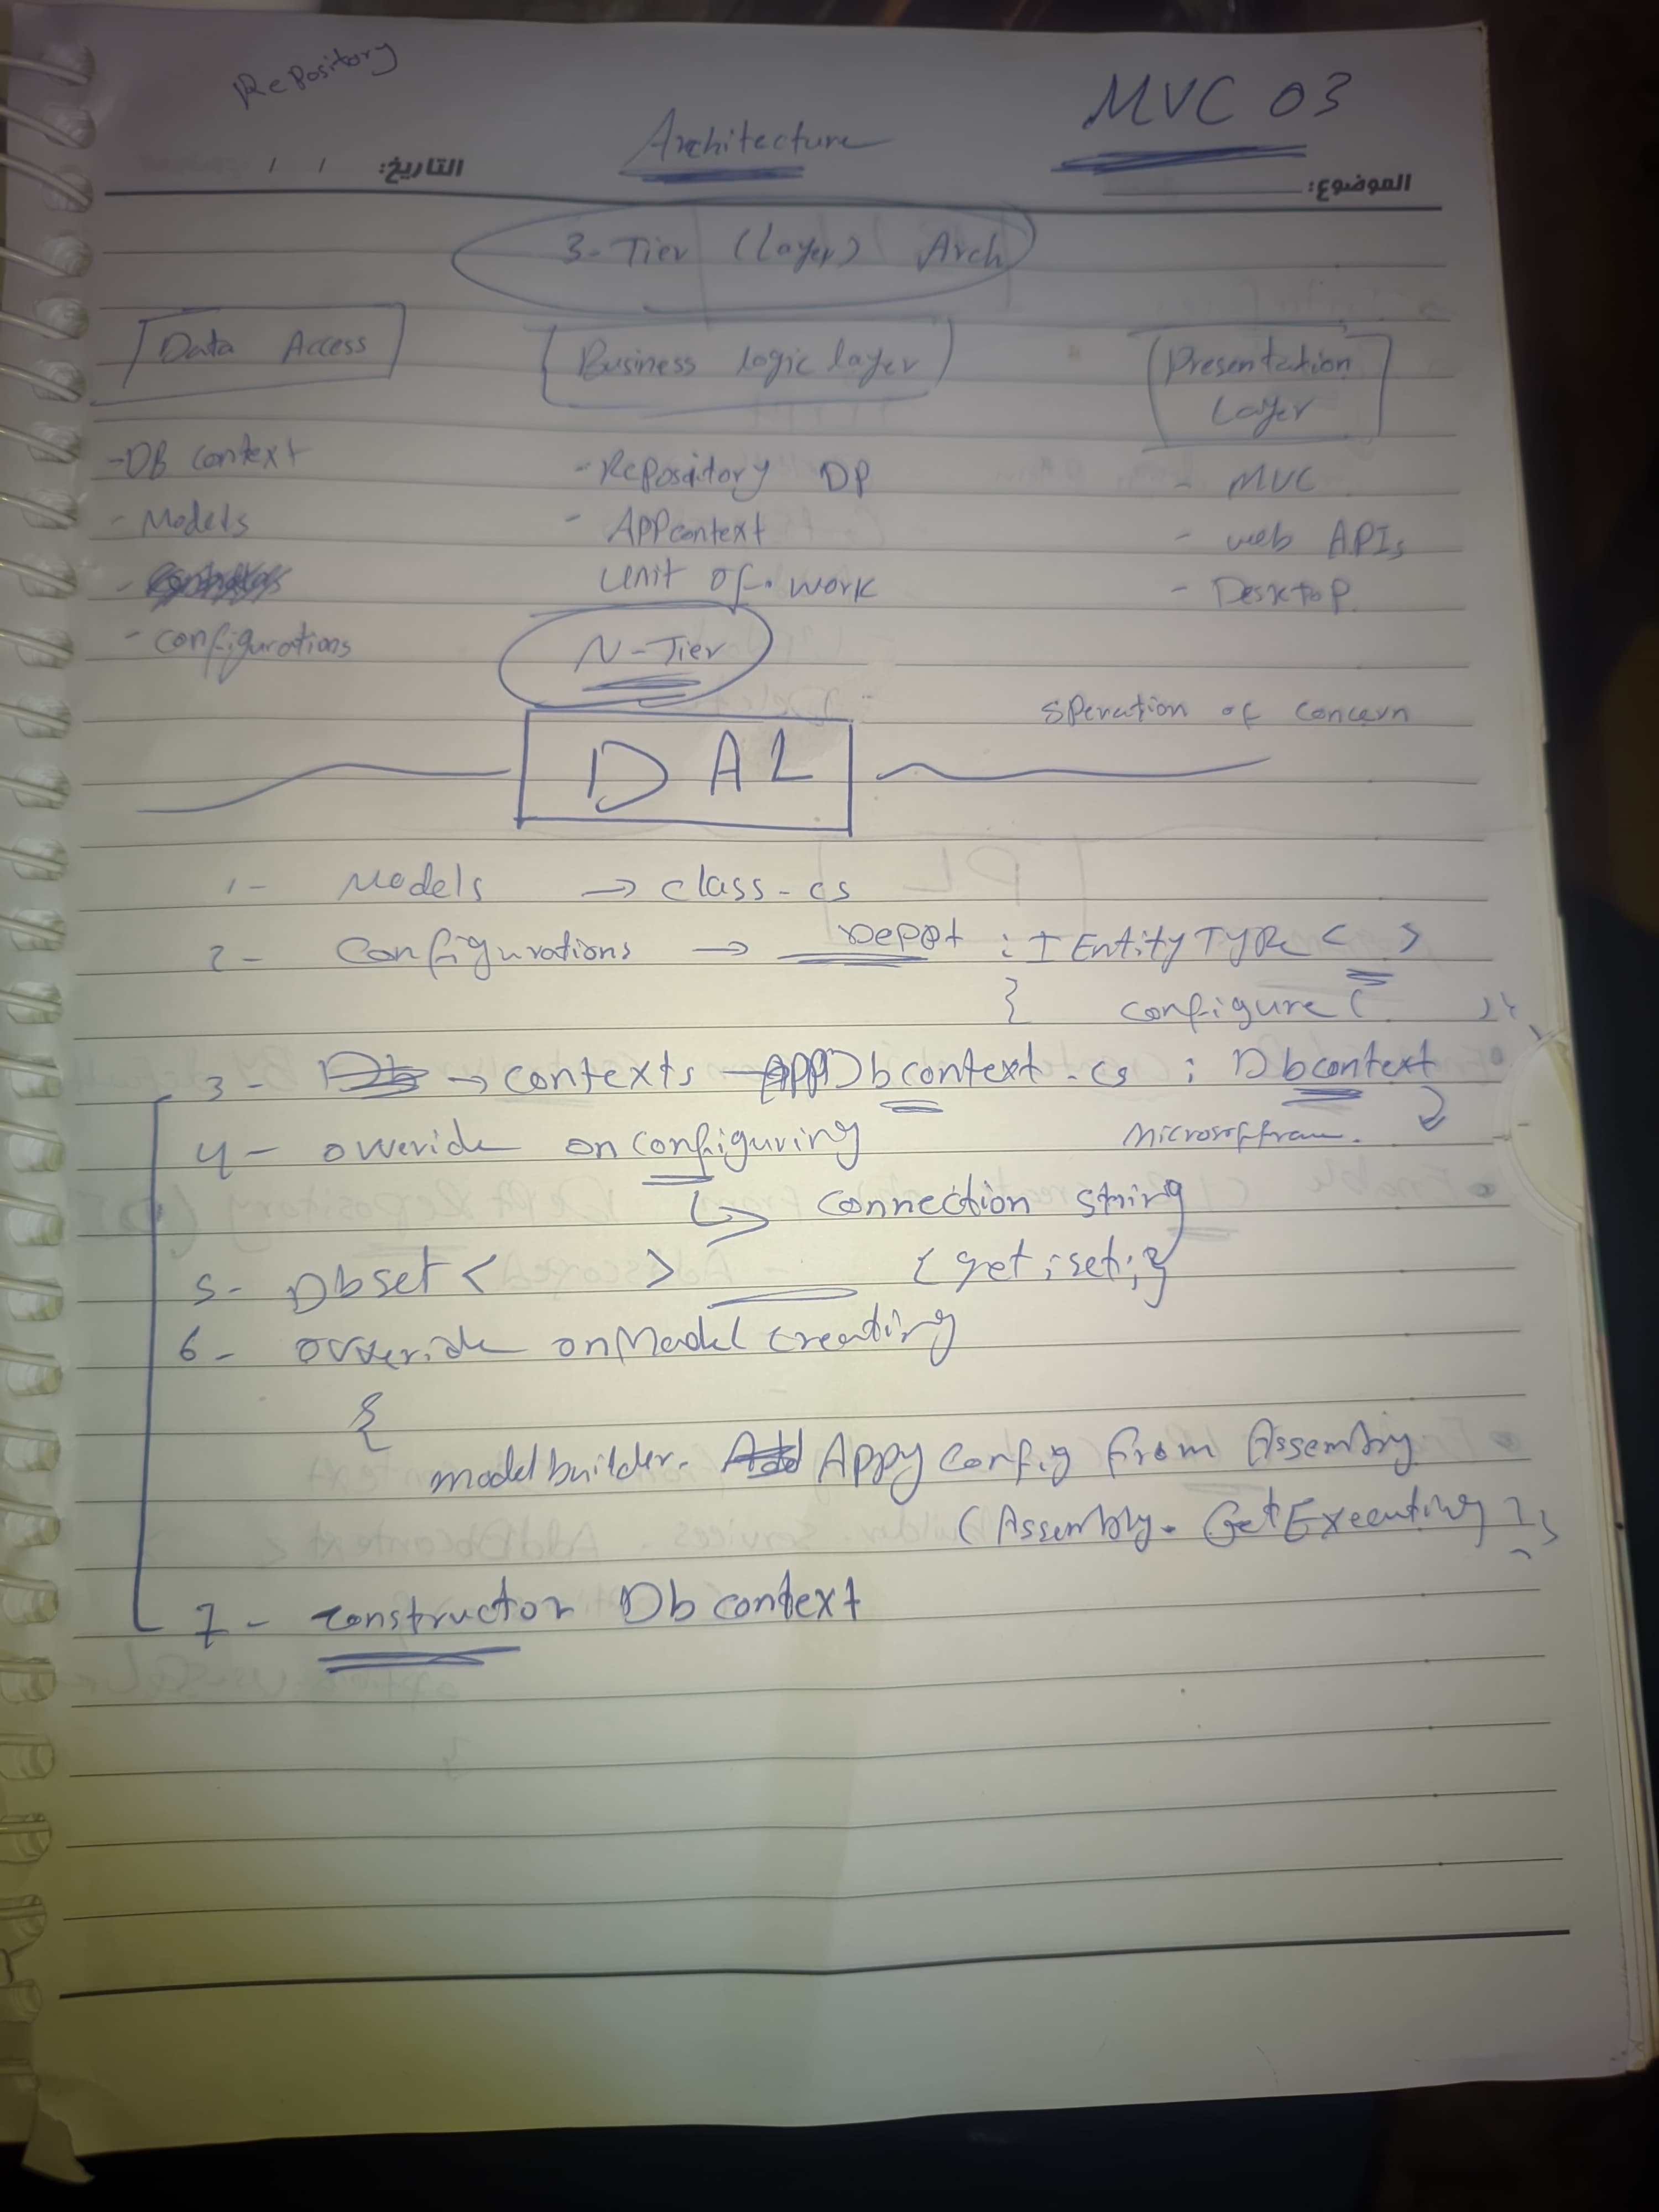 Repository
MVC 03
Architecture
التاريخ: / /
الموضوع:
3-Tier (Layer) Arch
Data Access
Business logic layer
Presentation
Layer
-DB context
- Models
- configurations
- Repository DP
- APPcontext
unit of work
- MVC
- web APIs
- Desktop
N-Tier
speration of concern
DAL
1- Models → class-cs
2- Configurations → Depat : IEntityType < >
{ configure( )
3- → contexts AppDbcontext.cs : Dbcontext
Microsoffram.
4- override onconfiguring
↳ connection string
5- Dbset < > ___ { get ; set; }
6- override onModel creating
{
modelbuilder. Appy config From Assembly
(Assembly. GetExecuting );
7- constructor Dbcontext